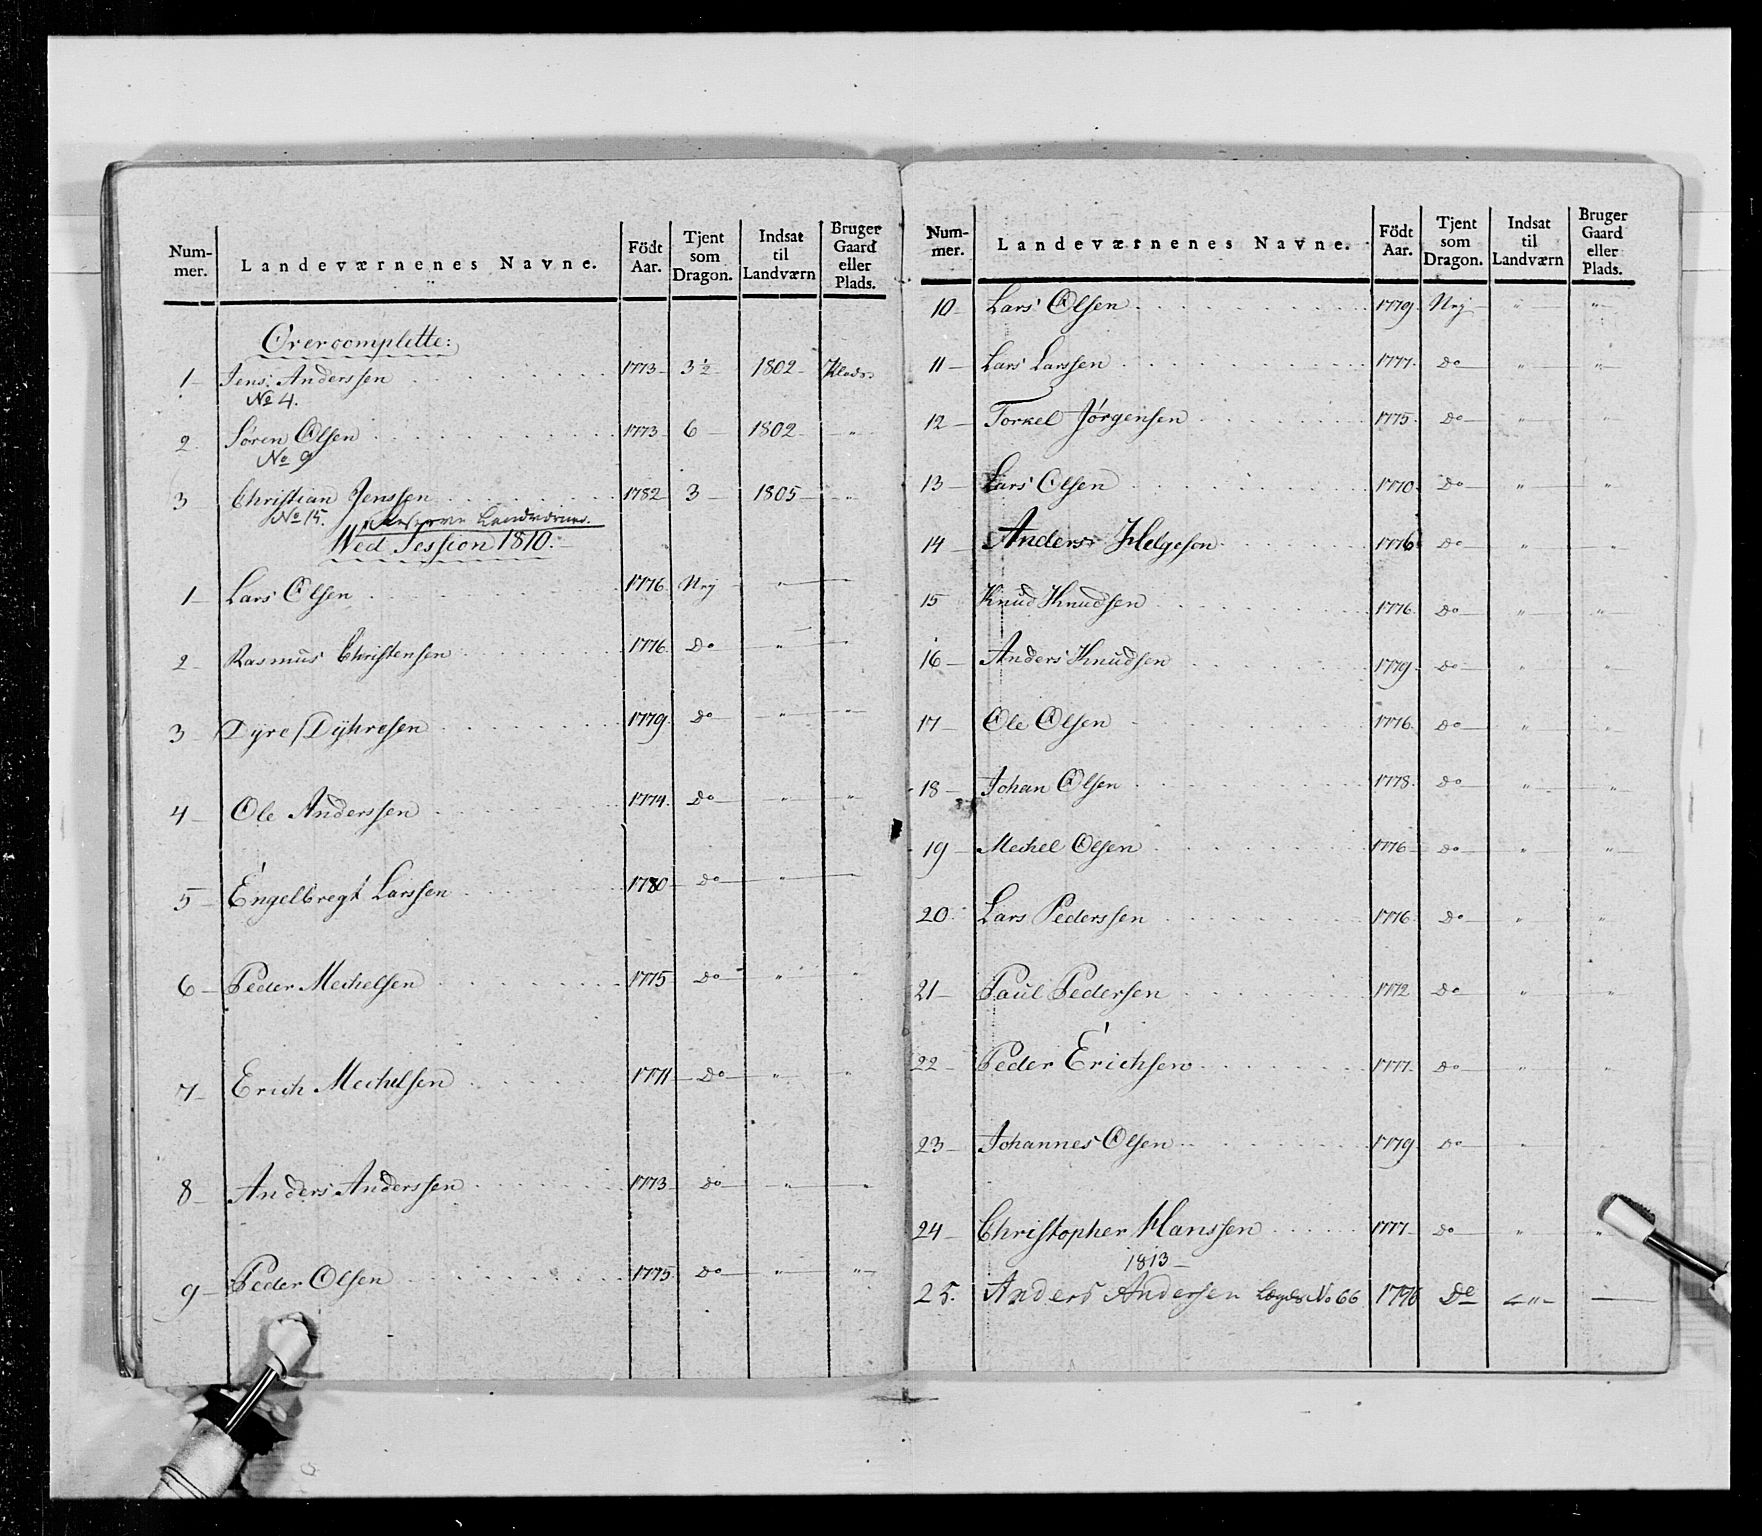 Num-mer. | Landeværnenes Navne. | Födt Aar. | Tjent som Dragon. | Indsat til Landværn | Bruger Gaard eller Plads.
Overcomplette:
1 Jens Anderssen 1773 3½ 1802
No 4.
2 Søren Olsen 1773 6 1802 "
No 9
3 Christian Jenssen 1782 3 1805 "
No 15.
Reserve Landværnet.
Wed Session 1810.
1 Lars Olsen 1776 Nÿ "
2 Rasmus Christensen 1776 Do "
3 Dyre Dÿhresen 1779 Do " "
4 Ole Anderssen 1774 Do " "
5 Engelbregt Larssen 1780 Do "
6 Peder Mechelsen 1775 Do " "
7 Erich Mechelsen 1771 Do " "
8 Anders Anderssen 1773 Do " "
9 Peder Olsen 1775 Do " "
Num-mer. | Landeværnenes Navne. | Födt Aar. | Tjent som Dragon. | Indsat til Landværn | Bruger Gaard eller Plads.
10 Lars Olsen 1779 Nÿ " "
11 Lars Larssen 1777 Do " "
12 Torkel Jørgensen 1775 Do " "
13 Lars Olsen 1770 Do " "
14 Anders Helgeson 1776 Do " "
15 Knud Knudsen 1776 Do " "
16 Anders Knudsen 1779 Do " "
17 Ole Olsen 1776 Do " "
18 Johan Olsen 1778 Do " "
19 Mechel Olsen 1776 Do " "
20 Lars Pederssen 1776 Do " "
21 Paul Pedersen 1772 Do " "
22 Peder Erichsen 1777 Do " "
23 Johannes Olsen 1779 Do "
24 Christopher Hanssen 1777 Do " "
1813
25. Anders Andersen Lægds No 66 1776 Do "